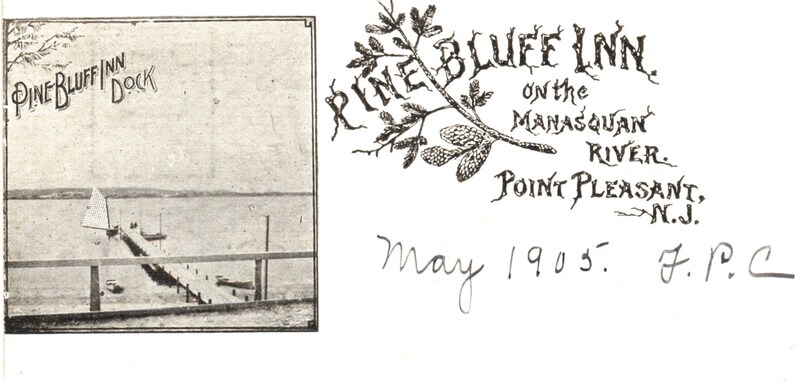 PINE BLUFF INN
DOCK
PINE BLUFF INN.
on the
MANASQUAN
RIVER.
POINT PLEASANT,
N.J.
May 1905. F. P. C